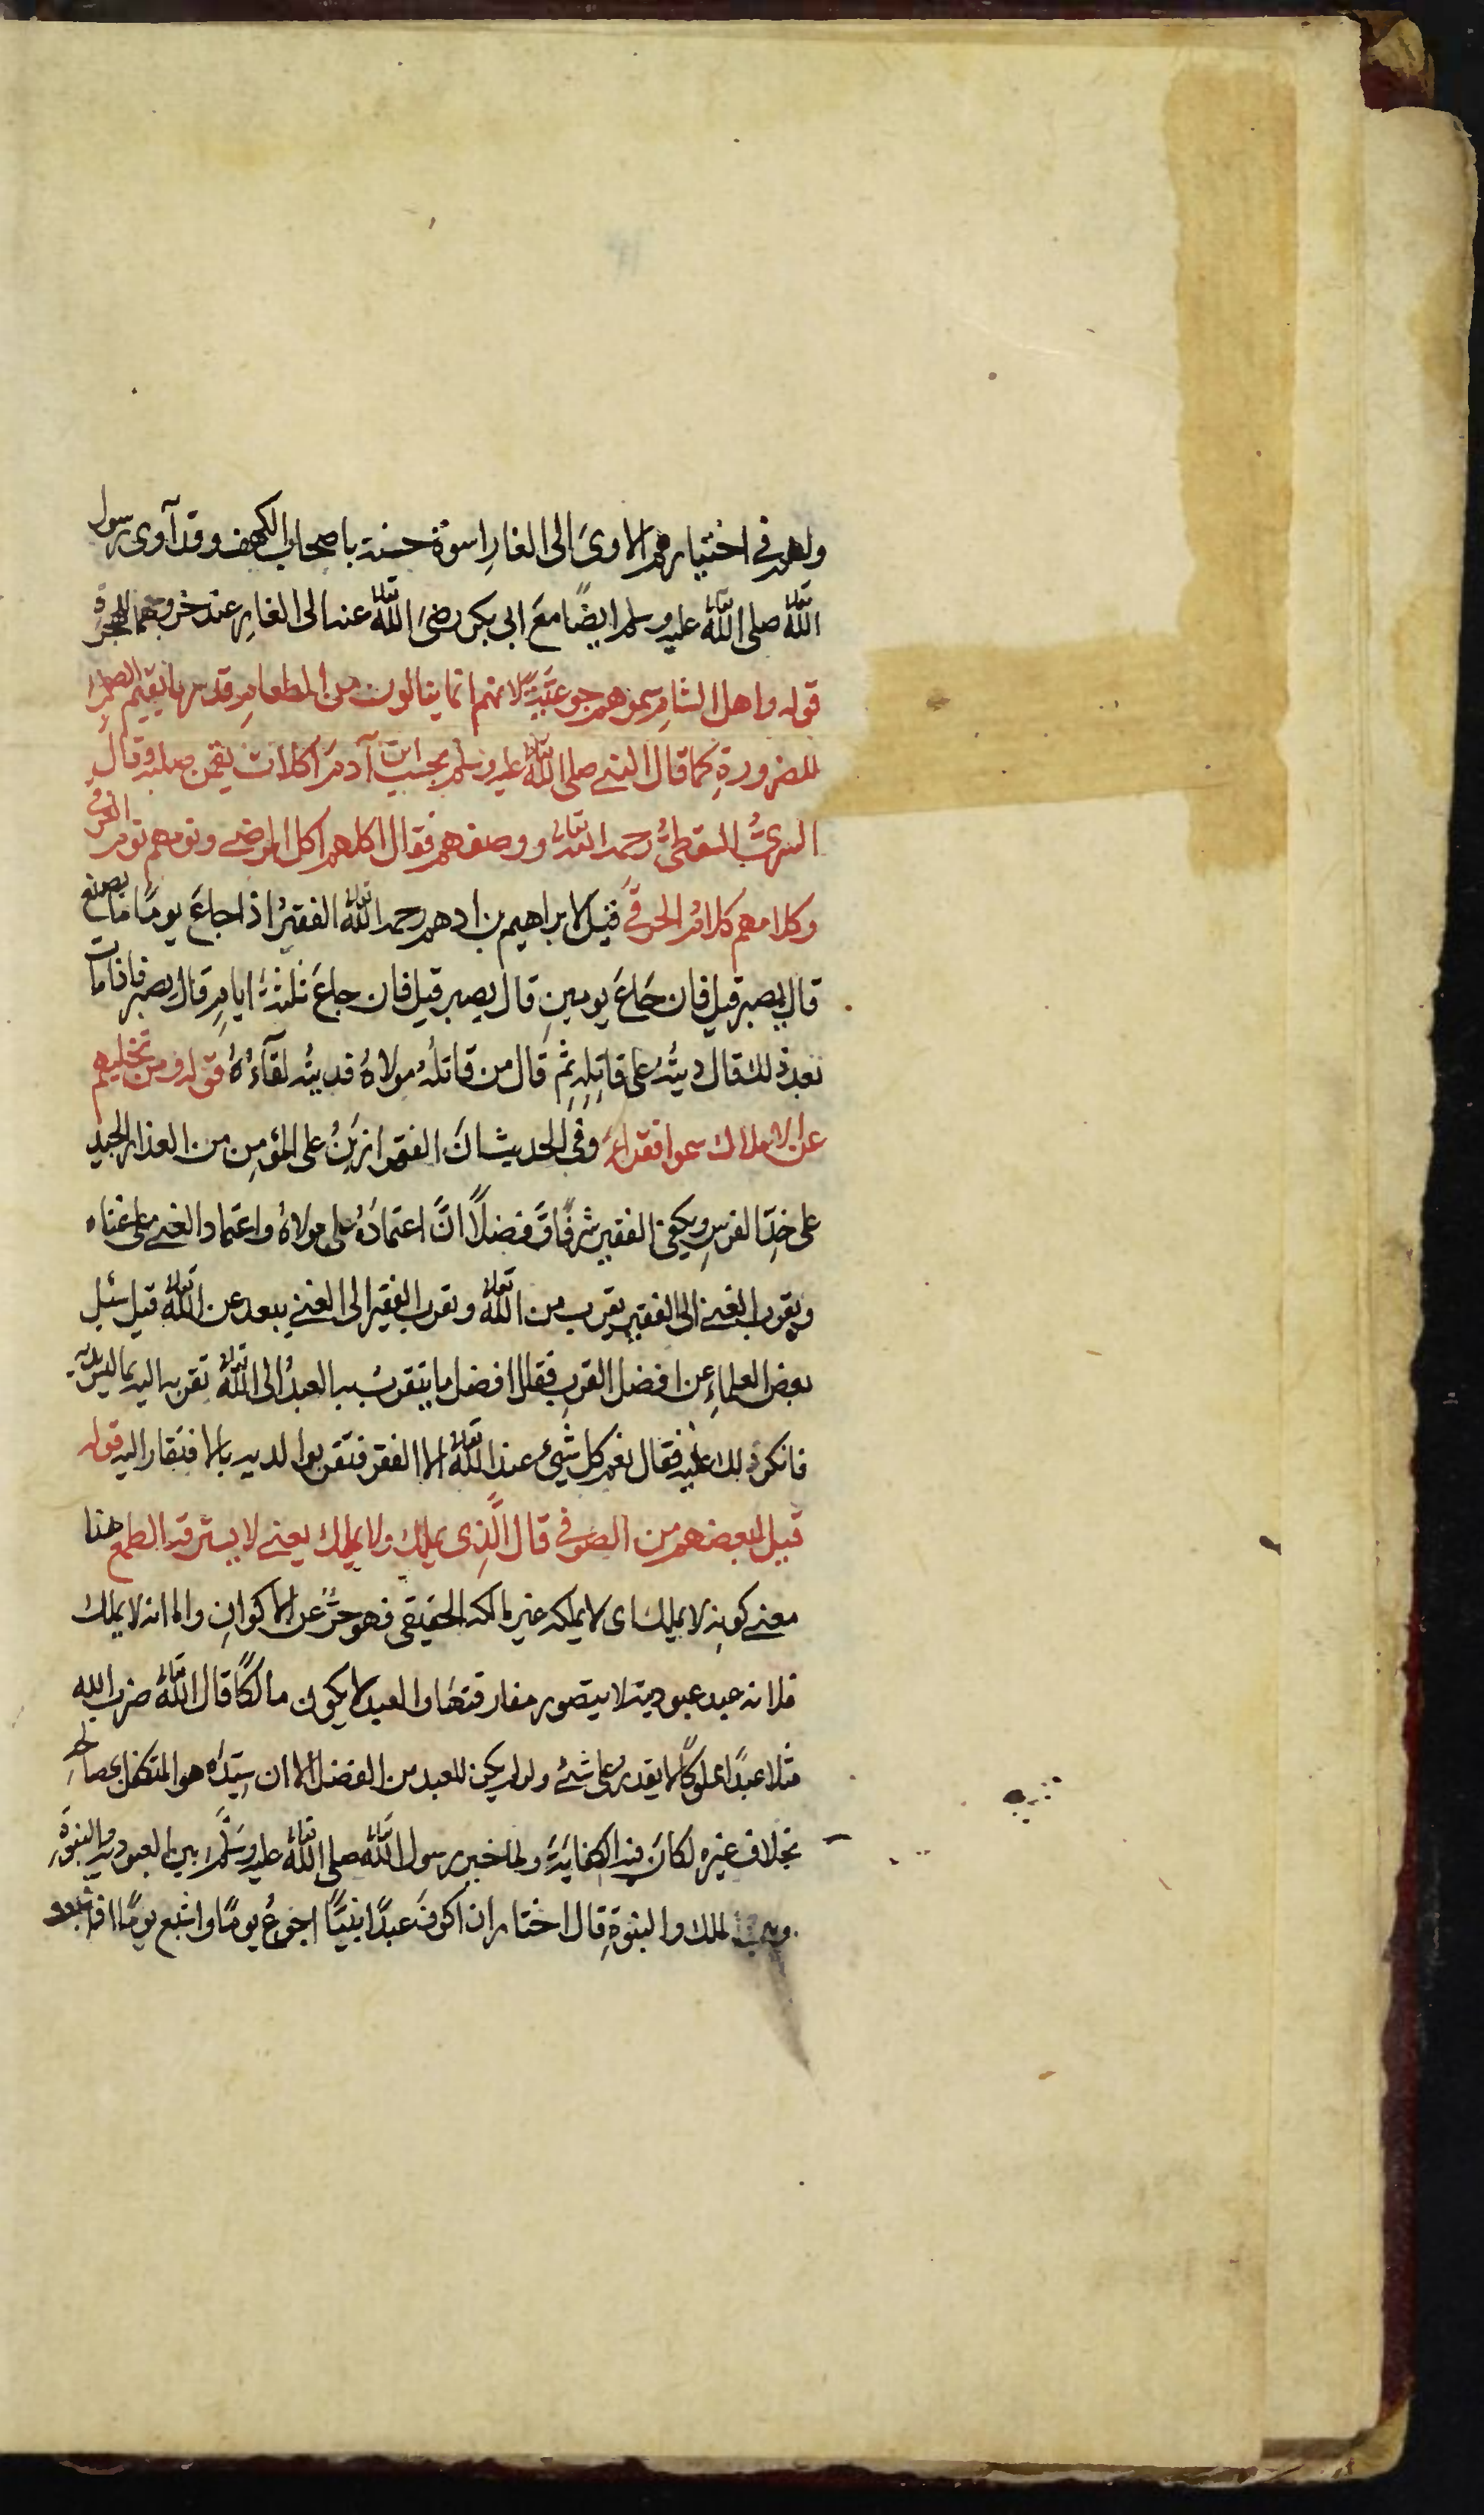 ولهم في اختيارهم الاوىَ الى الغارِ اسوة حسنة باصحاب الكهف وقد آوى رسول
اللّٰه تعالى صلى اللّٰه تعالى عليه وسلم ايضًا معَ ابى بكر رضىَ اللّٰه تعالى عنه الى الغارِ عند خروجهما للهجرة
قوله واهل الشامِ سموهم جوعيّةً لانهم انما ينالون من الطعامِ قدر ما يقيم الصلب
للضرورةِ كما قال النبى صلى اللّٰه تعالى عليه وسلم بحسب ابن آدمَ اكلات يقمن صلبه وقال
السرىُّ السقطىُّ رحمه اللّٰه تعالى ووصفهم فقال اكلهم اكل المرضى ونومهم نوم الغرقى
وكلامهم كلامُ الحرقىَ قيل لابراهيم بن ادهم رحمه اللّٰه تعالى الفقيرُ اذا جاعَ يومًا ما يصنع
قال يصبر قيل فان جَاعَ يومينِ قال يصبر قيل فان جاعَ ثلثةَ ايامٍ قال يصبر فاذا مات
بعد ذلك قال ديتُه على قاتِلِه ثم قال من قاتلُه مولاهُ فديتُه لقآءُهُ قوله ومن تخليهم
عن الاملاك سموا فقراءَ وفى الحديث انَ الفقر ازيَنُ على المؤمِنِ من العذار الجيد
على خدِّ الفرسِ ويكفى الفقير شرفًا وَفضلًا انَّ اعتمادَهُ على مولاهُ واعتماد الغنى على غناه
وبقرب الغنى الى الفقيرِ يقرب من اللّٰه تعالى وبقرب الفقير الى الغنى يبعد عن اللّٰه تعالى قيل سئل
بعض العلماءِ عن افضل القربِ فقال افضل ما يتقربُ به العبدُ الى اللّٰه تعالى تقربه اليه بما ليس لديه
فانكر ذلك عليه فقال نعم كل شيءٍ عند اللّٰه تعالى الا الفقر فتقربوا لديه بالافتقار اليه قوله
قيل لبعضهم من الصوفى قال الَّذى يملك ولا يملك يعنى لا يسترقه الطمع هذا
معنى كونِه لا يملك اى لا يملكه غير مالكه الحقيقى فهو حرٌّ عن الاكوانِ واما انه لا يملك
فلانه عبد عبوديته لا يتصور مفارقتهَا والعبد لا يكون مالكًا قال اللّٰه تعالى ضرب اللّه
مثلا عبدًا مملوكًا لا يقدر على شئ ولو لم يكن للعبد من الفضل الا ان سيّدَه هو المتكفل بمصالحه
بخلاف غيره لكان فيه الكفايَة ولما خير رسول اللّٰه تعالى صلى اللّٰه تعالى عليه وسَلّم بين العبودية والنبوّةِ
وبين الملك والنبوّةِ قال اختار ان اكونَ عبدًا نبيًّا اجوعُ يومًا واشبع يومًا